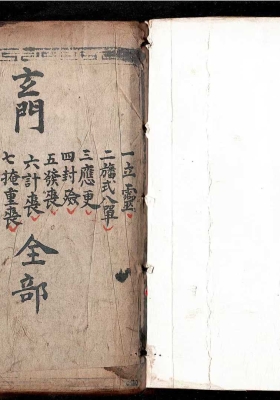 一立靈
二旛式八單
三應更
四封殮
五發喪
六計喪
七掩重喪
玄門
全部